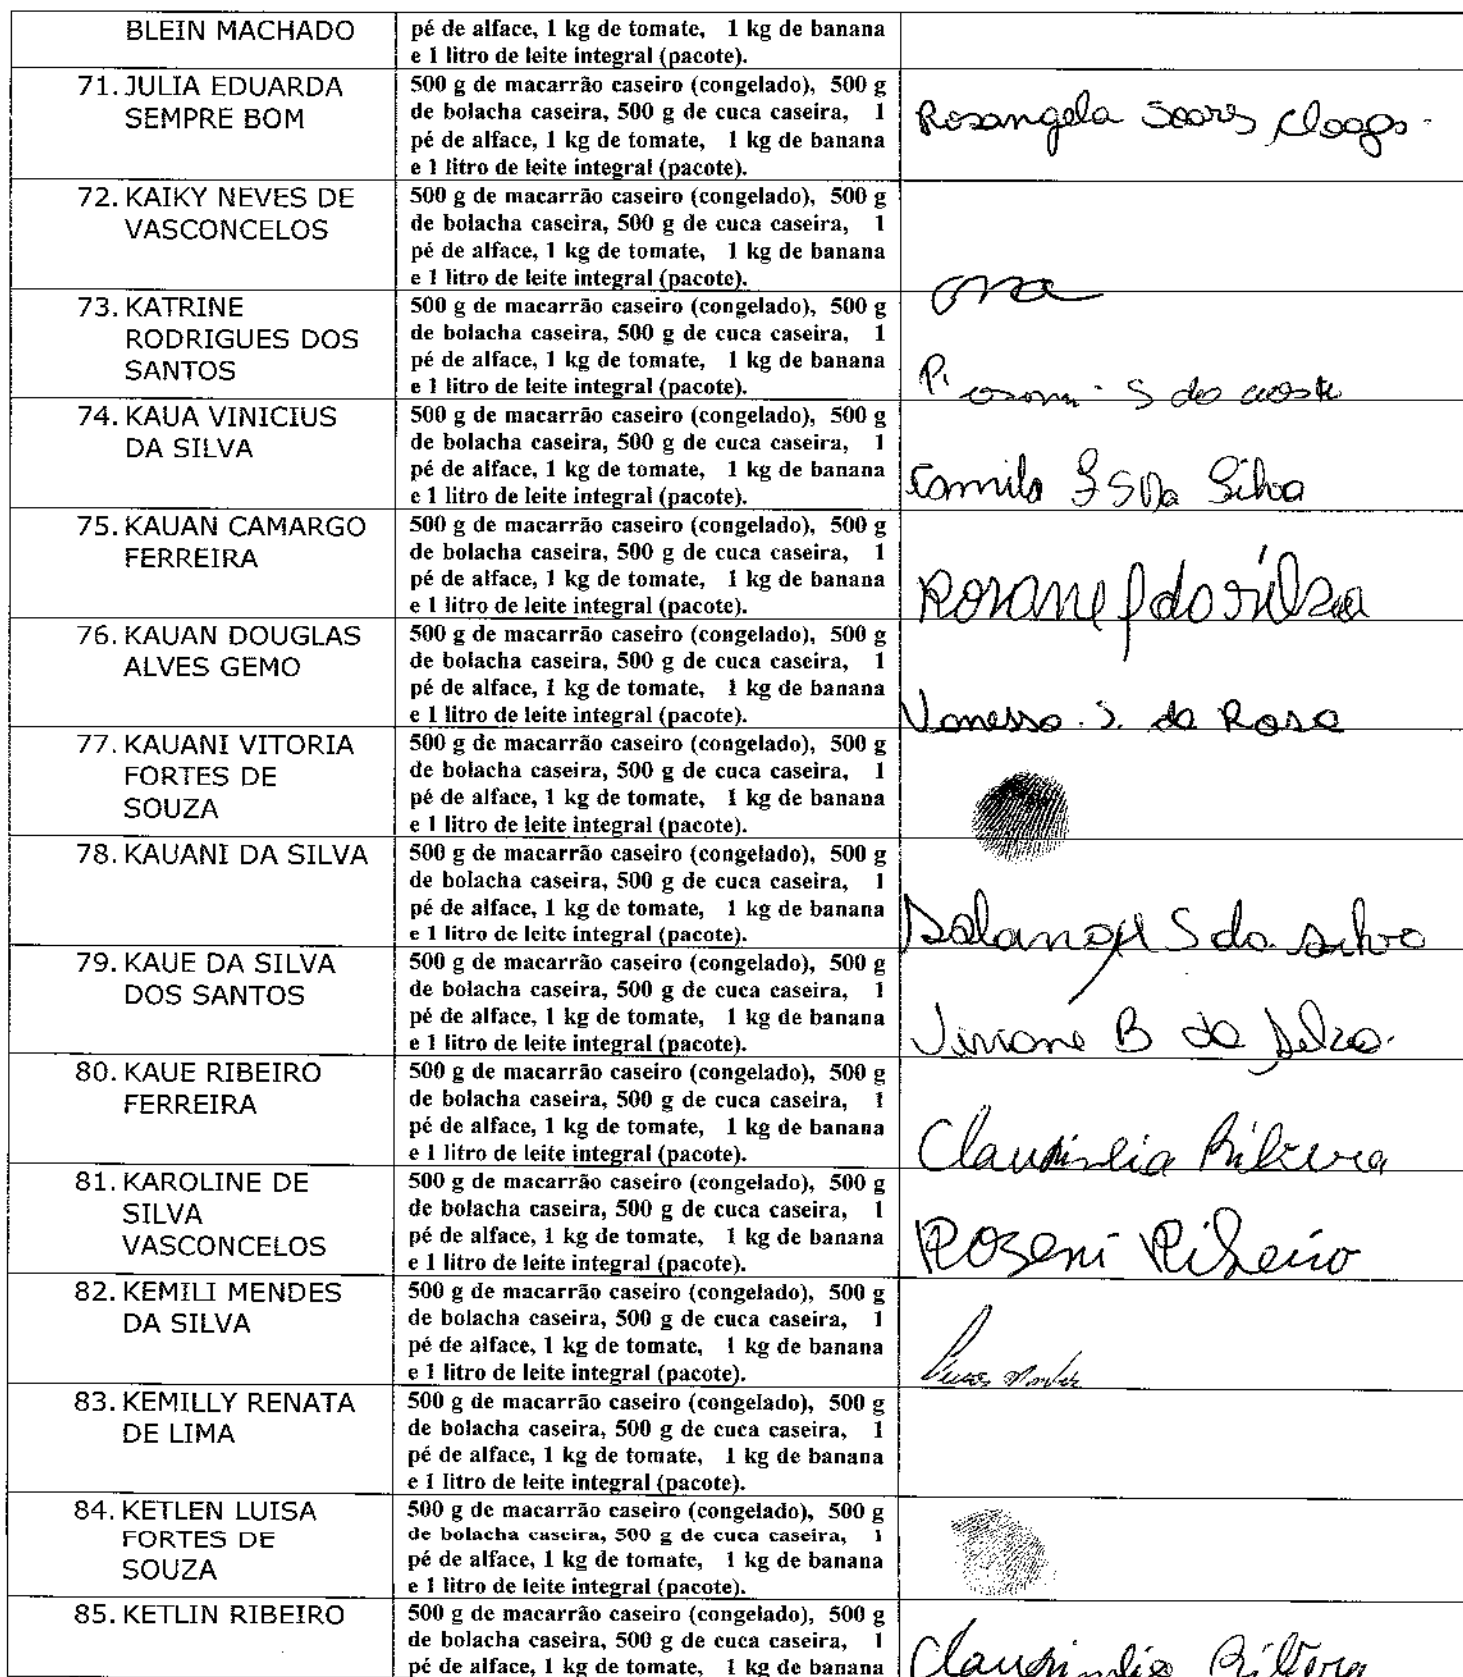 BLEIN MACHADO
pé de alface, 1 kg de tomate, 1 kg de banana
e 1 litro de leite integral (pacote).
71. JULIA EDUARDA
SEMPRE BOM
500 g de macarrão caseiro (congelado), 500 g
de bolacha caseira, 500 g de cuca caseira, 1
pé de alface, 1 kg de tomate, 1 kg de banana
e 1 litro de leite integral (pacote).
Rosangela Soares
72. KAIKY NEVES DE
VASCONCELOS
500 g de macarrão caseiro (congelado), 500 g
de bolacha caseira, 500 g de cuca caseira, 1
pé de alface, 1 kg de tomate, 1 kg de banana
e 1 litro de leite integral (pacote).
73. KATRINE
RODRIGUES DOS
SANTOS
500 g de macarrão caseiro (congelado), 500 g
de bolacha caseira, 500 g de cuca caseira, 1
pé de alface, 1 kg de tomate, 1 kg de banana
e 1 litro de leite integral (pacote).
74. KAUA VINICIUS
DA SILVA
500 g de macarrão caseiro (congelado), 500 g
de bolacha caseira, 500 g de cuca caseira, 1
pé de alface, 1 kg de tomate, 1 kg de banana
e 1 litro de leite integral (pacote).
Silva
75. KAUAN CAMARGO
FERREIRA
500 g de macarrão caseiro (congelado), 500 g
de bolacha caseira, 500 g de cuca caseira, 1
pé de alface, 1 kg de tomate, 1 kg de banana
e 1 litro de leite integral (pacote).
Rosane
76. KAUAN DOUGLAS
ALVES GEMO
500 g de macarrão caseiro (congelado), 500 g
de bolacha caseira, 500 g de cuca caseira, 1
pé de alface, 1 kg de tomate, 1 kg de banana
e 1 litro de leite integral (pacote).
Vanessa. S. da Rosa
77. KAUANI VITORIA
FORTES DE
SOUZA
500 g de macarrão caseiro (congelado), 500 g
de bolacha caseira, 500 g de cuca caseira, 1
pé de alface, 1 kg de tomate, 1 kg de banana
e 1 litro de leite integral (pacote).
78. KAUANI DA SILVA
500 g de macarrão caseiro (congelado), 500 g
de bolacha caseira, 500 g de cuca caseira, 1
pé de alface, 1 kg de tomate, 1 kg de banana
e 1 litro de leite integral (pacote).
S da Silva
79. KAUE DA SILVA
DOS SANTOS
500 g de macarrão caseiro (congelado), 500 g
de bolacha caseira, 500 g de cuca caseira, 1
pé de alface, 1 kg de tomate, 1 kg de banana
e 1 litro de leite integral (pacote).
B da Silva.
80. KAUE RIBEIRO
FERREIRA
500 g de macarrão caseiro (congelado), 500 g
de bolacha caseira, 500 g de cuca caseira, 1
pé de alface, 1 kg de tomate, 1 kg de banana
e 1 litro de leite integral (pacote).
81. KAROLINE DE
SILVA
VASCONCELOS
500 g de macarrão caseiro (congelado), 500 g
de bolacha caseira, 500 g de cuca caseira, 1
pé de alface, 1 kg de tomate, 1 kg de banana
e 1 litro de leite integral (pacote).
Roseni Ribeiro
82. KEMILI MENDES
DA SILVA
500 g de macarrão caseiro (congelado), 500 g
de bolacha caseira, 500 g de cuca caseira, 1
pé de alface, 1 kg de tomate, 1 kg de banana
e 1 litro de leite integral (pacote).
83. KEMILLY RENATA
DE LIMA
500 g de macarrão caseiro (congelado), 500 g
de bolacha caseira, 500 g de cuca caseira, 1
pé de alface, 1 kg de tomate, 1 kg de banana
e 1 litro de leite integral (pacote).
84. KETLEN LUISA
FORTES DE
SOUZA
500 g de macarrão caseiro (congelado), 500 g
de bolacha caseira, 500 g de cuca caseira, 1
pé de alface, 1 kg de tomate, 1 kg de banana
e 1 litro de leite integral (pacote).
85. KETLIN RIBEIRO
500 g de macarrão caseiro (congelado), 500 g
de bolacha caseira, 500 g de cuca caseira, 1
pé de alface, 1 kg de tomate, 1 kg de banana